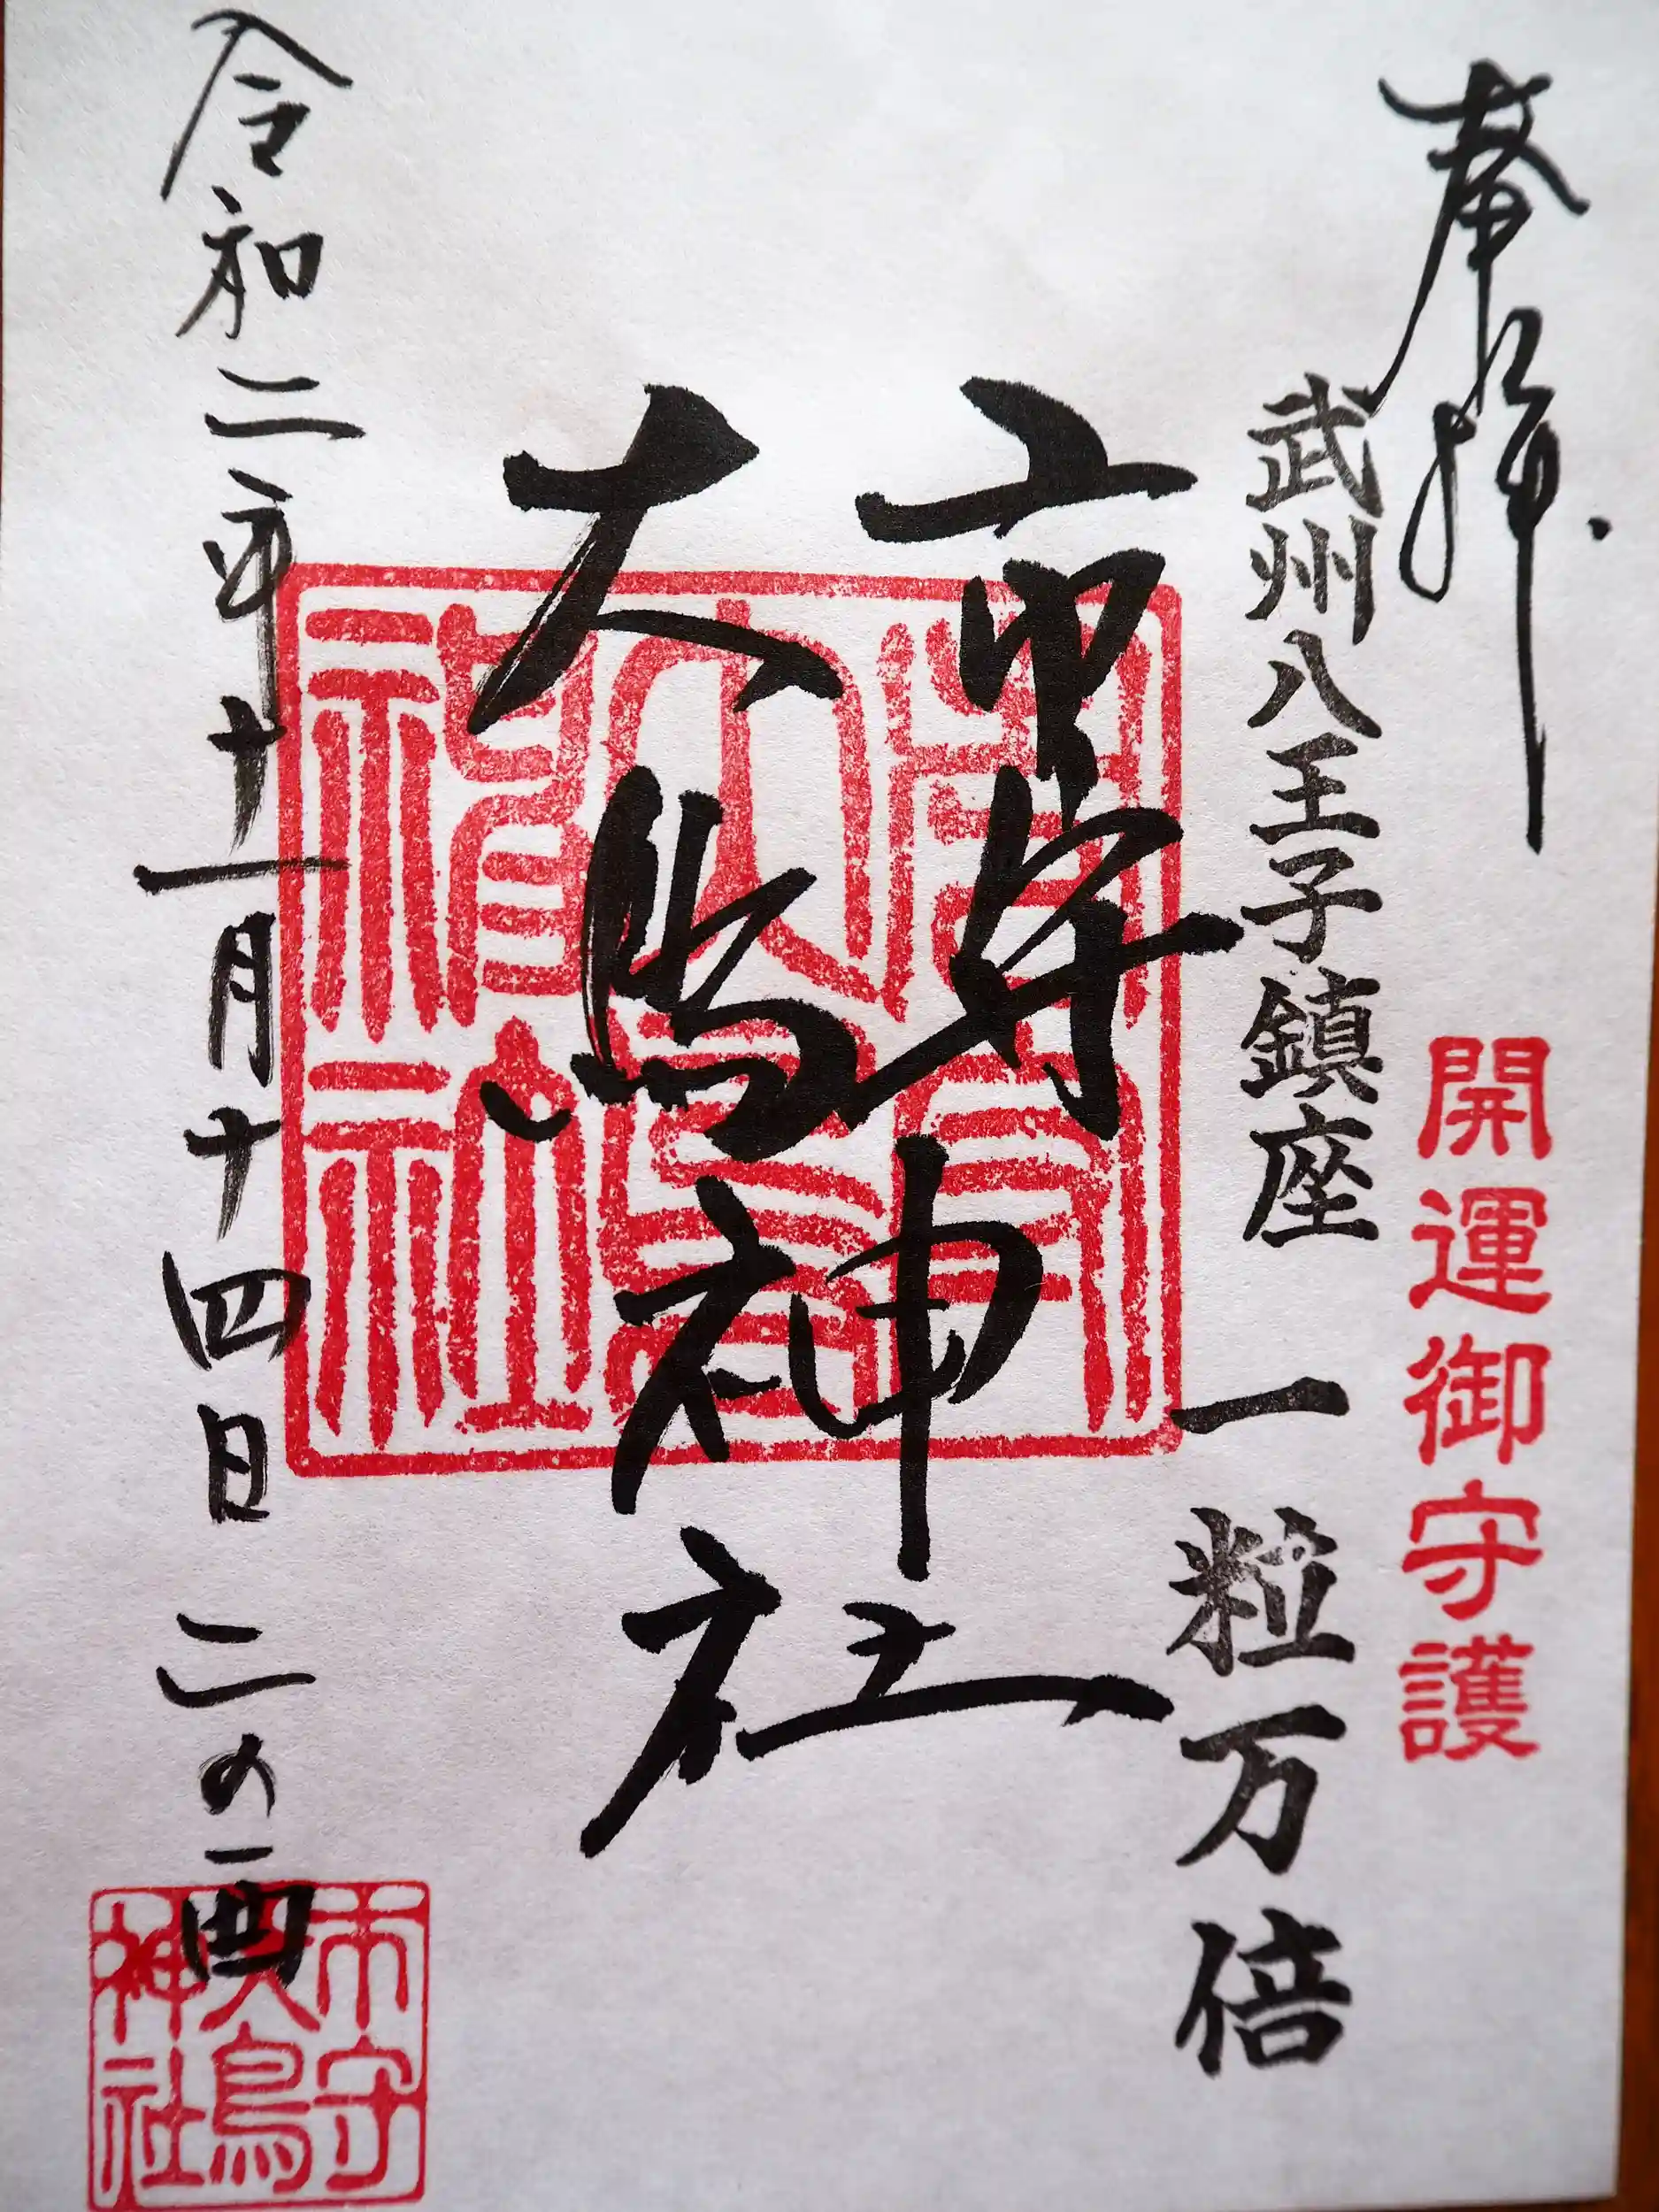 奉拝
開運御守護
武州八王子鎮座
一粒万倍
市守
大鳥神社
令和二年十一月十四日 二の酉
市守
大鳥
神社